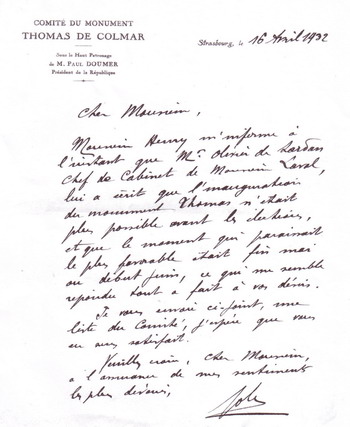 COMITÉ DU MONUMENT
THOMAS DE COLMAR
Sous le Haut Patronage
de M. PAUL DOUMER
Président de la République
Strasbourg, le 16 Avril 1932
Cher Monsieur,
Monsieur Henry m'informe à
l'instant que Mr. Olivier de Sardan
Chef de Cabinet de Monsieur Laval,
lui a écrit que l'inauguration
du monument Thomas n'était
plus possible avant les élections,
et que le moment qui paraissait
le plus favorable était fin mai
ou début juin, ce qui me semble
répondre tout à fait à vos désirs.
Je vous envoie ci-joint, une
liste du Comité, j'espère que vous
en serez satisfait.
Veuillez croire, cher Monsieur,
à l'assurance de mes sentiments
les plus dévoués,